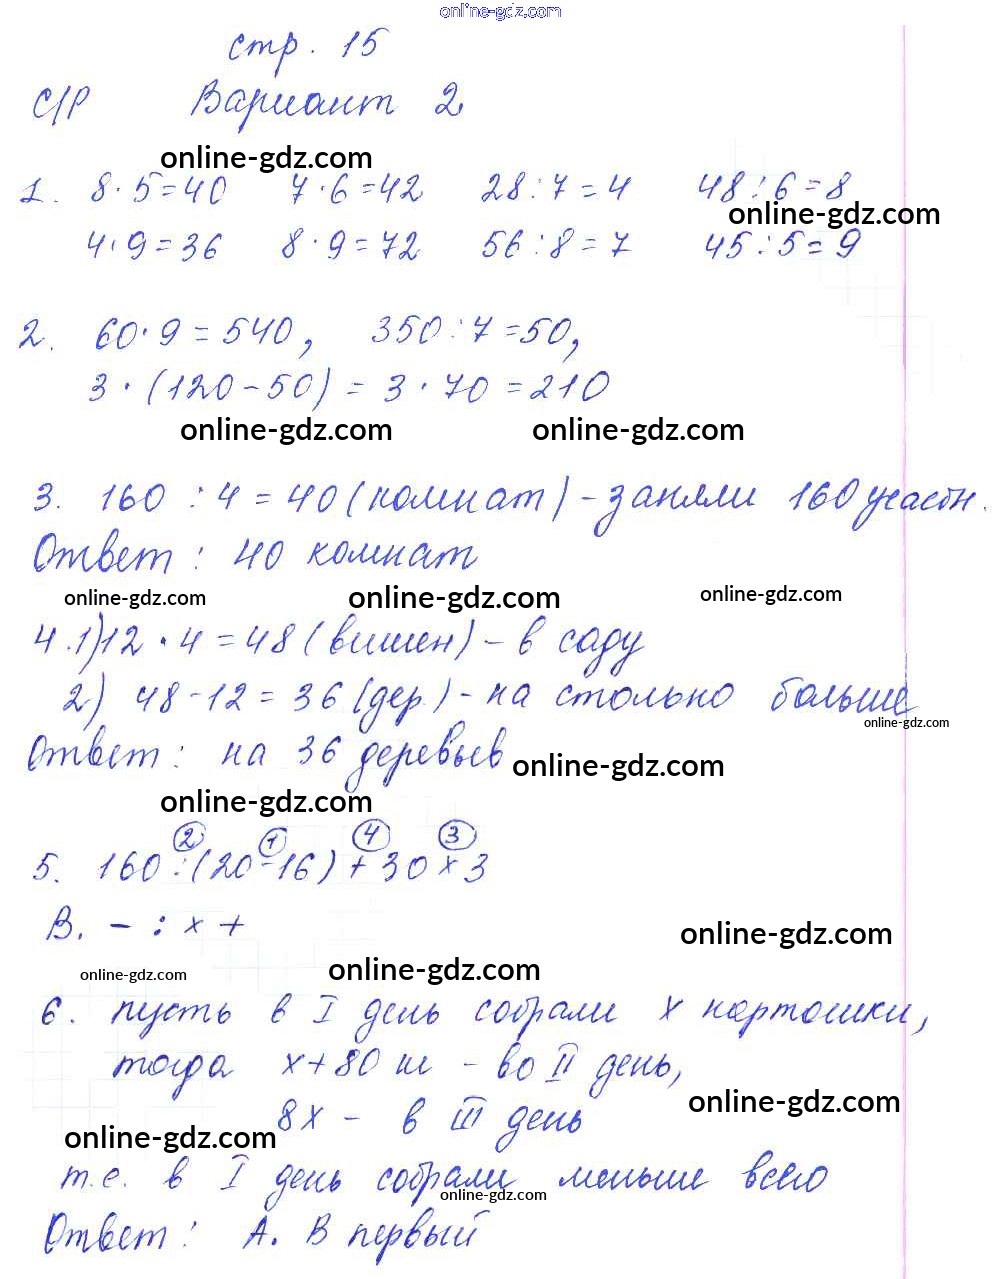 online-gdz.com
стр. 15
С/Р Вариант 2
online-gdz.com
1. 8·5=40 7·6=42 28:7=4 48:6=8
online-gdz.com
4·9=36 8·9=72 56:8=7 45:5=9
2. 60·9=540, 350:7=50,
3·(120-50)=3·70=210
online-gdz.com online-gdz.com
3. 160:4=40(комнат)-заняли 160 участн.
Ответ: 40 комнат
online-gdz.com online-gdz.com online-gdz.com
4.1)12·4=48(вишен)-в саду
2) 48-12=36(дер.)-на столько больше
online-gdz.com
Ответ: на 36 деревьев
online-gdz.com
online-gdz.com
2 1 4 3
5. 160:(20-16)+30×3
В. - : × +
online-gdz.com
online-gdz.com online-gdz.com
6. пусть в I день собрали х картошки,
тогда х+80 ш - во II день,
online-gdz.com
8х - в III день
online-gdz.com
т.е. в I день собрали меньше всего
online-gdz.com
Ответ: А. В первый